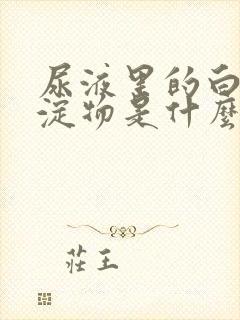 尿液里的白
淀物是什麼
莊王